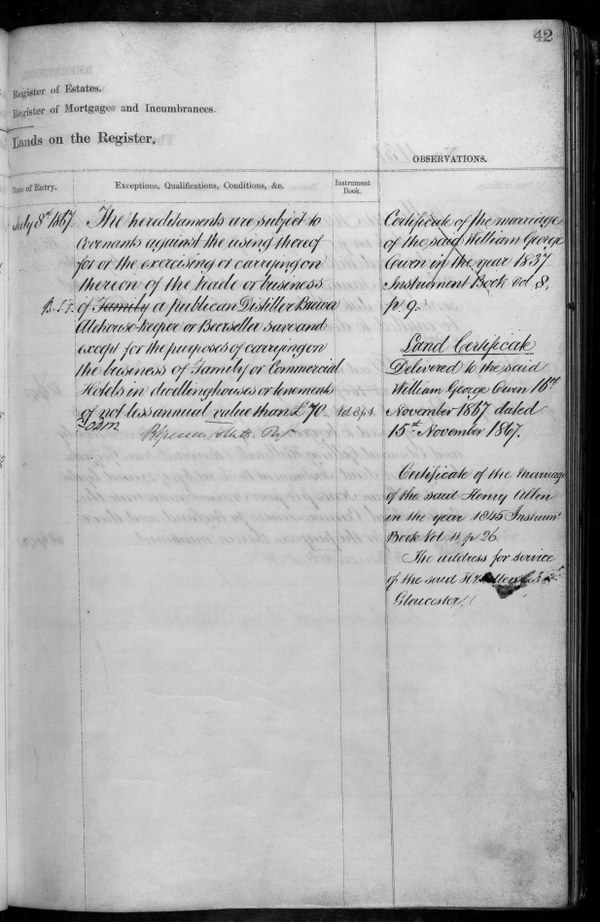 42
Register of Estates.
Register of Mortgages and Incumbrances.
Lands on the Register.
OBSERVATIONS.
Date of Entry.
Exceptions, Qualifications, Conditions, &c.
Instrument Book.
July 8th 1867
The hereditaments are subject to
Covenants against the using thereof
for or the exercising or carrying on
thereon of the trade or business
of Family a publican Distiller Brewer
Alehouse-keeper or Beerseller save and
except for the purposes of carrying on
the business of Family or Commercial
Hotels in dwellinghouses or tenements
of not less annual value than £70. Vol 8 p 1.
Certificate of the marriage
of the said William George
Owen in the year 1837
Instrument Book vol 8,
p. 9.
Land Certificate
Delivered to the said
William George Owen 16th
November 1867 dated
15th November 1867.
Certificate of the marriage
of the said Henry Allen
in the year 1845 Instrumt
Book Vol 11, p 26.
The address for service
of the said
Gloucester